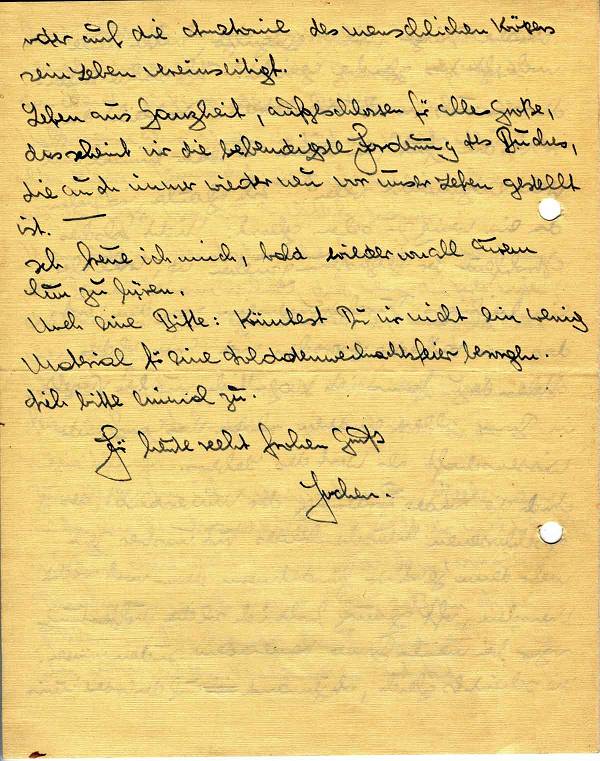 oder auf die Anatomie des menschlichen Körpers
sein Leben vereinseitigt.
Leben aus Ganzheit, aufgeschlossen für alles Große,
das scheint mir die lebendigste Forderung des Buches,
die auch immer wieder neu vor unser Leben gestellt
ist. —
Ich freue ich mich, bald wieder von all Eurem
Tun zu hören.
Noch eine Bitte: Könntest Du mir nicht ein wenig
Material für eine Soldatenweihnachtsfeier besorgen.
Sieh bitte einmal zu.
Für heute recht frohen Gruß
Jochen.